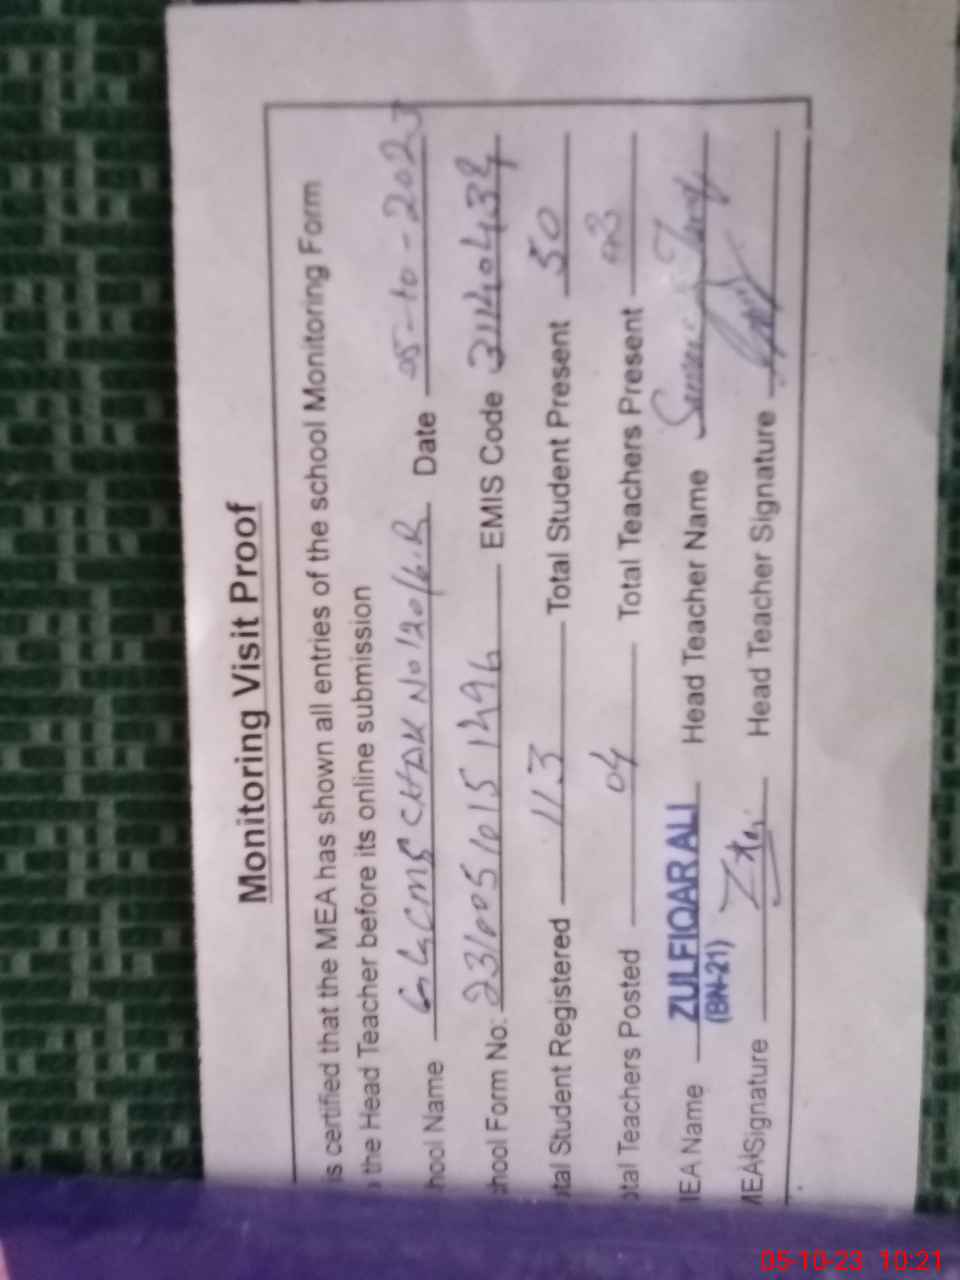 Monitoring Visit Proof
is certified that the MEA has shown all entries of the school Monitoring Form
the Head Teacher before its online submission
hool Name GGCMS CHAK No 120/6.R Date 05-10-2023
hool Form No: EMIS Code 31140434
tal Student Registered 113 Total Student Present 50
tal Teachers Posted 04 Total Teachers Present 03
MEA Name ZULFIQAR ALI Head Teacher Name
(BN-21)
MEA Signature Head Teacher Signature
05-10-23 10:21